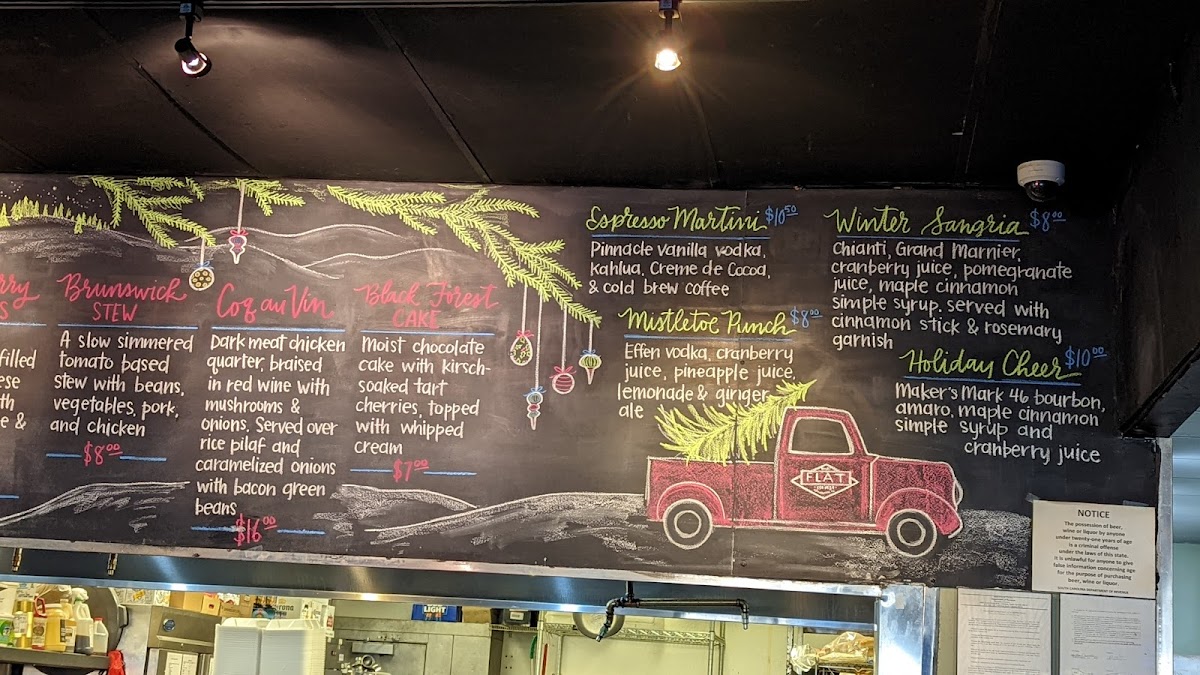 rry
s
filled
ese
th
e &
Brunswick
STEW
A slow simmered
tomato based
stew with beans,
vegetables, pork,
and chicken
$8.00
Coq au Vin
Dark meat chicken
quarter, braised
in red wine with
mushrooms &
onions. Served over
rice pilaf and
caramelized onions
with bacon green
beans
$16.00
Black Forest
CAKE
Moist chocolate
cake with kirsch-
soaked tart
cherries, topped
with whipped
cream
$7.00
Espresso Martini $10.50
Pinnacle vanilla vodka,
kahlua, Creme de Cocoa,
& cold brew coffee
Mistletoe Punch $8.00
Effen vodka, cranberry
juice, pineapple juice,
lemonade & ginger
ale
Winter Sangria $8.00
Chianti, Grand Marnier,
cranberry juice, pomegranate
juice, maple cinnamon
simple syrup. served with
cinnamon stick & rosemary
garnish
Holiday Cheer $10.00
Maker's Mark 46 bourbon,
amaro, maple cinnamon
simple syrup and
cranberry juice
F.L.A.T.
NOTICE
The possession of beer,
wine or liquor by anyone
under twenty-one years of age
is a criminal offense
under the laws of this state.
It is unlawful for anyone to give
false information concerning age
for the purpose of purchasing
beer, wine or liquor.
SOUTH CAROLINA DEPARTMENT OF REVENUE
LIGHT